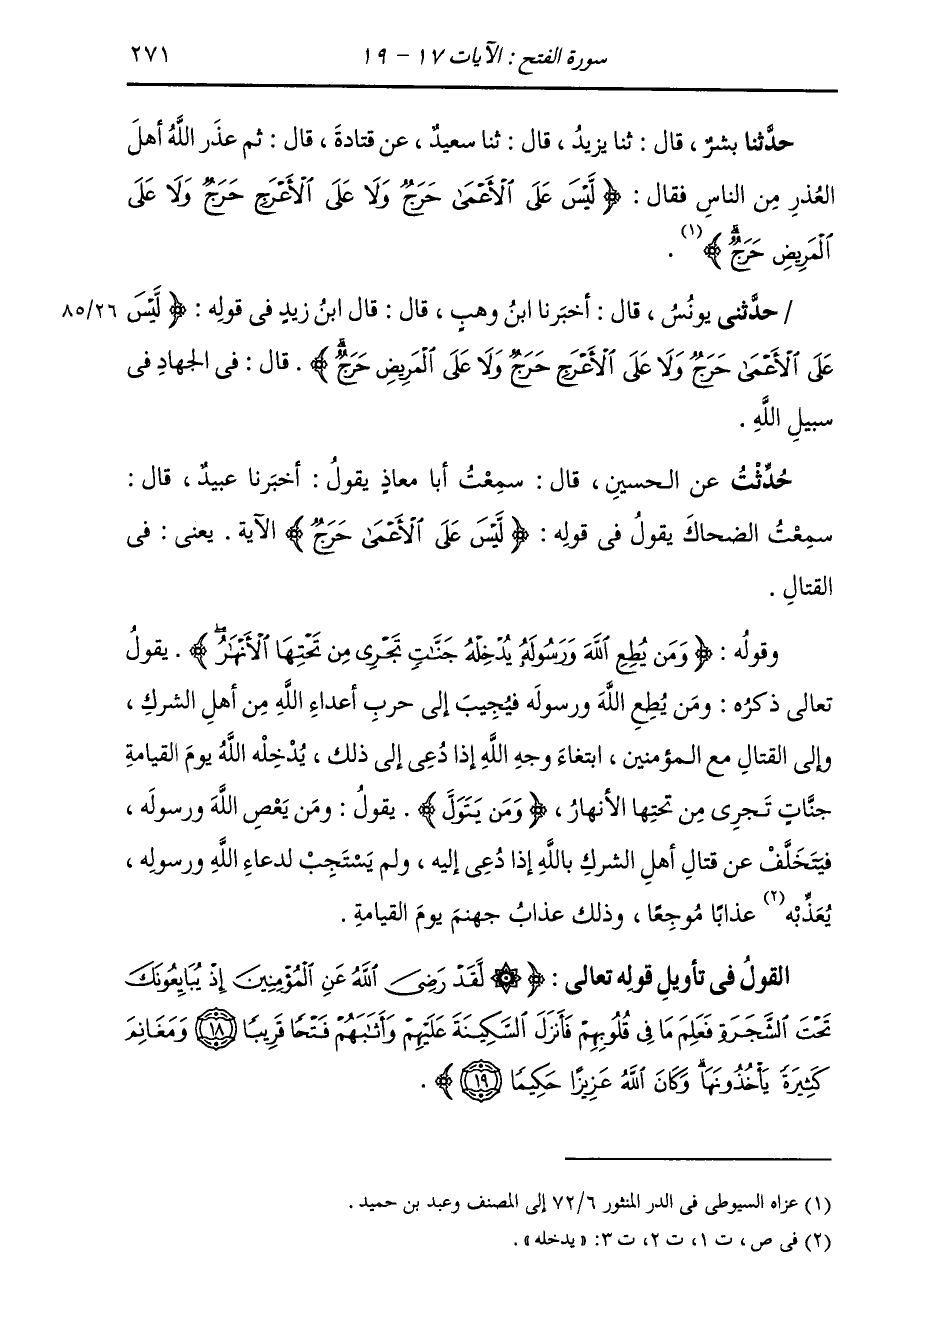 سورة الفتح : الآيات ١٧ - ١٩ ٢٧١
حدَّثنا بشرٌ ، قال : ثنا يزيدُ ، قال : ثنا سعيدٌ ، عن قتادةَ ، قال : ثم عذَر اللَّهُ أهلَ
العُذرِ مِن الناسِ فقال : ﴿ لَّيْسَ عَلَى ٱلْأَعْمَىٰ حَرَجٌ وَلَا عَلَى ٱلْأَعْرَجِ حَرَجٌ وَلَا عَلَى
ٱلْمَرِيضِ حَرَجٌ ۗ ﴾ (١) .
/ حدَّثنى يونُسُ ، قال : أخبَرنا ابنُ وهبٍ ، قال : قال ابنُ زيدٍ فى قولِه : ﴿ لَّيْسَ ٨٥/٢٦
عَلَى ٱلْأَعْمَىٰ حَرَجٌ وَلَا عَلَى ٱلْأَعْرَجِ حَرَجٌ وَلَا عَلَى ٱلْمَرِيضِ حَرَجٌ ۗ ﴾ . قال : فى الجهادِ فى
سبيلِ اللَّهِ .
حُدِّثْتُ عن الحسينِ ، قال : سمِعْتُ أبا معاذٍ يقولُ : أخبَرنا عبيدٌ ، قال :
سمِعْتُ الضحاكَ يقولُ فى قولِه : ﴿ لَّيْسَ عَلَى ٱلْأَعْمَىٰ حَرَجٌ ﴾ الآية . يعنى : فى
القتالِ .
وقولُه : ﴿ وَمَن يُطِعِ ٱللَّهَ وَرَسُولَهُۥ يُدْخِلْهُ جَنَّـٰتٍ تَجْرِى مِن تَحْتِهَا ٱلْأَنْهَـٰرُ ۖ ﴾ . يقولُ
تعالى ذكرُه : ومَن يُطِعِ اللَّهَ ورسولَه فيُجِيبَ إلى حربِ أعداءِ اللَّهِ مِن أهلِ الشركِ ،
وإلى القتالِ مع المؤمنين ، ابتغاءَ وجهِ اللَّهِ إذا دُعِى إلى ذلك ، يُدْخِلْه اللَّهُ يومَ القيامةِ
جنَّاتٍ تَجرِى مِن تحتِها الأنهارُ ، ﴿ وَمَن يَتَوَلَّ ﴾ . يقولُ : ومَن يَعْصِ اللَّهَ ورسولَه ،
فيَتَخَلَّفْ عن قتالِ أهلِ الشركِ باللَّهِ إذا دُعِى إليه ، ولم يَسْتَجِبْ لدعاءِ اللَّهِ ورسولِه ،
يُعَذِّبْه (٢) عذابًا مُوجِعًا ، وذلك عذابُ جهنمَ يومَ القيامةِ .
القولُ فى تأويلِ قولِه تعالى : ﴿ ۞ لَّقَدْ رَضِىَ ٱللَّهُ عَنِ ٱلْمُؤْمِنِينَ إِذْ يُبَايِعُونَكَ
تَحْتَ ٱلشَّجَرَةِ فَعَلِمَ مَا فِى قُلُوبِهِمْ فَأَنزَلَ ٱلسَّكِينَةَ عَلَيْهِمْ وَأَثَـٰبَهُمْ فَتْحًا قَرِيبًا ١٨ وَمَغَانِمَ
كَثِيرَةً يَأْخُذُونَهَا ۗ وَكَانَ ٱللَّهُ عَزِيزًا حَكِيمًا ١٩ ﴾ .
(١) عزاه السيوطى فى الدر المنثور ٧٢/٦ إلى المصنف وعبد بن حميد .
(٢) فى ص ، ت ١، ت ٢، ت ٣: « يدخله » .